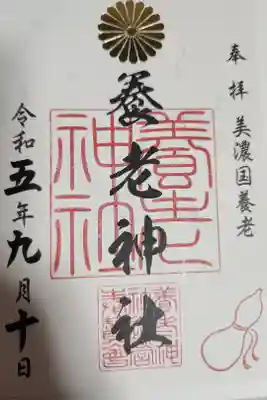 奉拝 美濃国養老
養老神社
養老
神社
令和五年九月十日